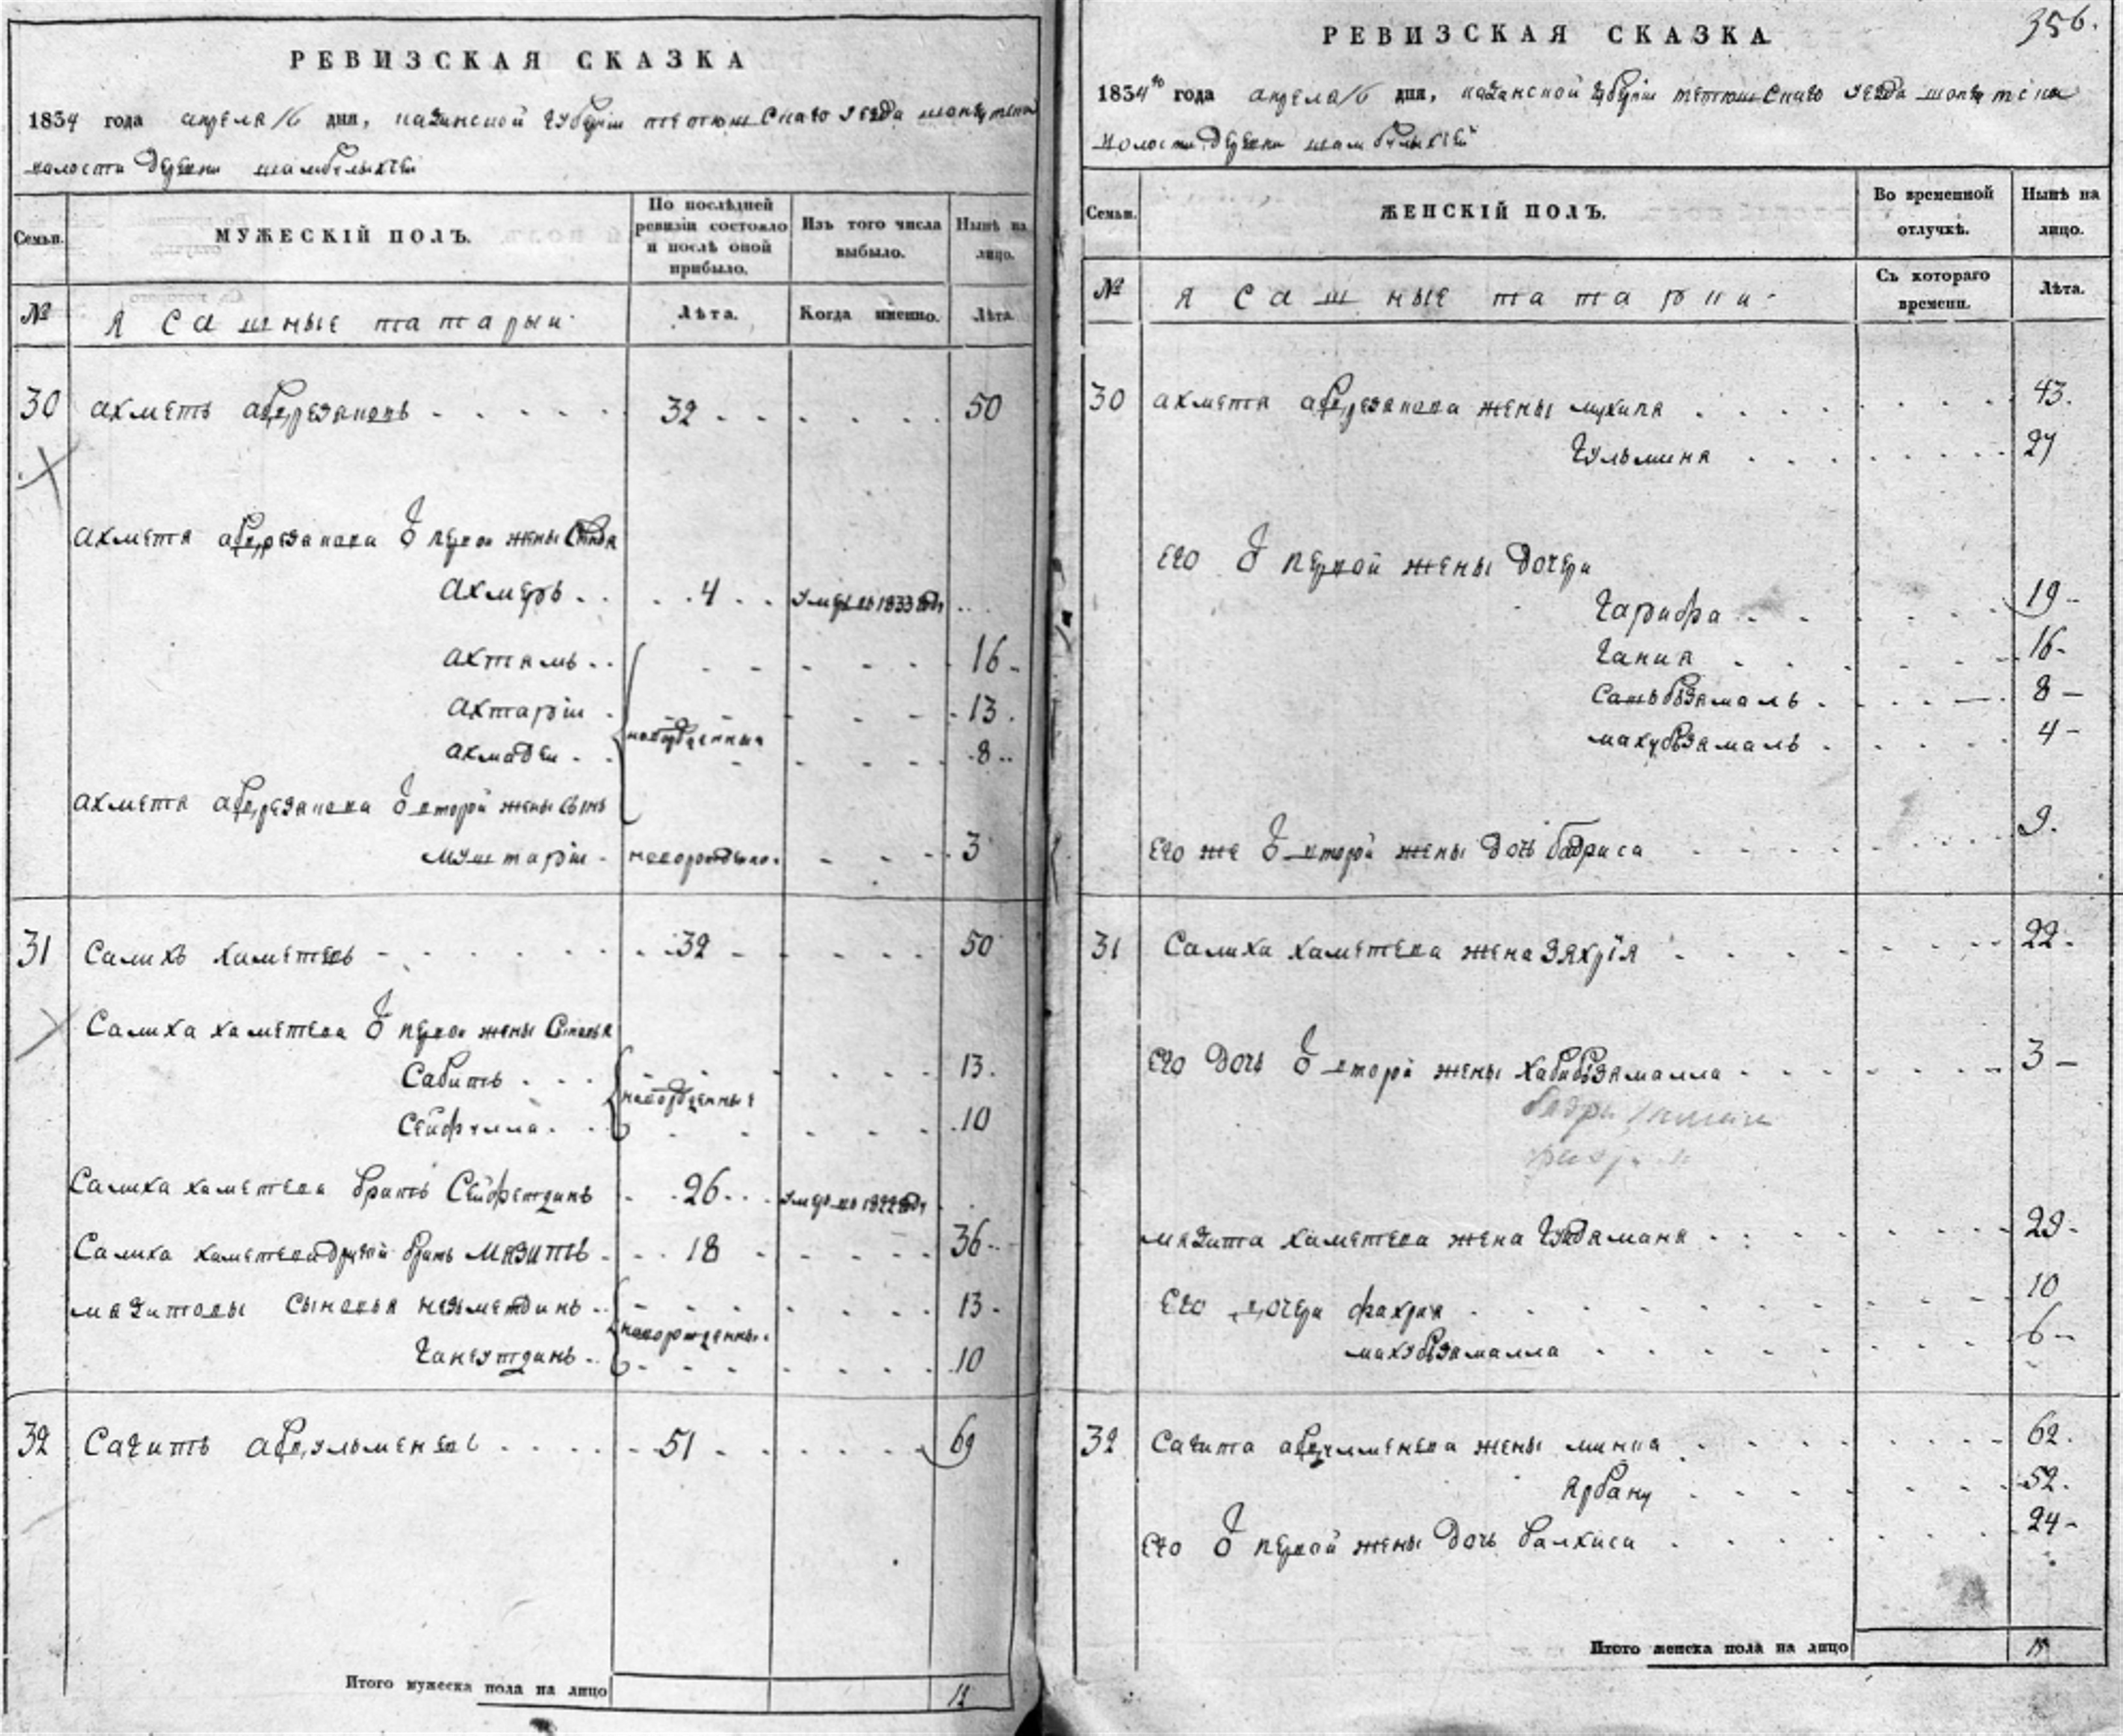 РЕВИЗСКАЯ СКАЗКА
1834 года апреля 16 дня, казанской губернiи тетюшскаго уезда
волости деревни шамбулыхчей
Семьи.
МУЖЕСКІЙ ПОЛЪ.
По послѣдней ревизіи состояло и послѣ оной прибыло.
Изъ того числа выбыло.
Нынѣ на лицо.
№
Ясашные татары
Лѣта.
Когда именно.
Лѣта.
30 ахметь абдрезаковь 32 50
ахметя абдрезакова о первои жены сыновя
Ахмерь 4 умеръ въ 1833 году
ахтямь 16
ахтарiи 13
новорожденныя
ахмадеи 8
ахметя абдрезакова о второй жены сынь
муштарiи новорожденно 3
31 Салихь хаметевь 32 50
Салиха хаметева о первои жены Сыновья
Сабить 13
новорожденные
Сейфулла 10
Салиха хаметева брать Сейфетдинь 26 умеръ во 1822 году
Салиха хаметева другой брать Мязить 18 36
мязитовы сыновья незметдинь 13
новорожденны
Ганеутдинь 10
32 Сагить абдульменевь 51 69
Итого мужеска пола на лицо 12
356.
РЕВИЗСКАЯ СКАЗКА
1834го года апреля 16 дня, казанской губернiи тетюшскаго уезда
волости деревни шамбулыхчей
Семьи.
ЖЕНСКІЙ ПОЛЪ.
Во временной отлучкѣ.
Нынѣ на лицо.
№
Ясашные татарки
Съ котораго времени.
Лѣта.
30 ахметя абдрезякова жены мухипя 43.
Гульминя 27
Его о первой жены дочери
Гарифа 19
Гания 16
Сатьбзямаль 8
махубзямаль 4
Его же о второй жены дочь бадриса 9.
31 Салиха хаметева жена Зяхрiя 22
Его дочь о второй жены хабибзямалла 3
мязита хаметева жена Гулзямана 29
Его дочери фахрия 10
махубзямалла 6
32 Сагита абдулменева жены минса 62
Ярбану 52
Его о первой жены дочь балхиса 24
Итого женска пола на лицо 15